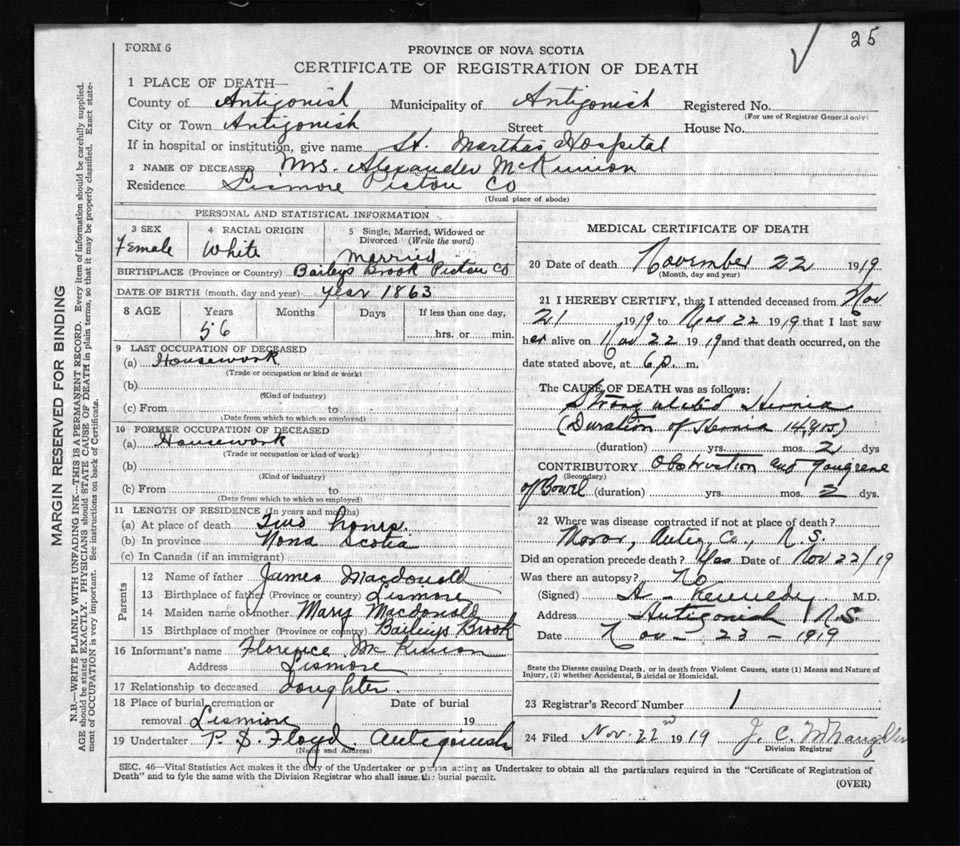 25
FORM 6
PROVINCE OF NOVA SCOTIA
CERTIFICATE OF REGISTRATION OF DEATH
1 PLACE OF DEATH—
County of Antigonish Municipality of Antigonish Registered No.
(For use of Registrar General only)
City or Town Antigonish Street House No.
If in hospital or institution, give name St. Marthas Hospital
2 NAME OF DECEASED Mrs. Alexander McKinnon
Residence Lismore Pictou Co
(Usual place of abode)
PERSONAL AND STATISTICAL INFORMATION
3 SEX Female
4 RACIAL ORIGIN White
5 Single, Married, Widowed or Divorced (Write the word) Married
BIRTHPLACE (Province or Country) Baileys Brook Pictou Co
DATE OF BIRTH (month, day and year) year 1863
8 AGE Years Months Days If less than one day,
56 hrs. or min.
9 LAST OCCUPATION OF DECEASED
(a) Housework
(Trade or occupation or kind or work)
(b)
(Kind of industry)
(c) From to
(Date from which to which so employed)
10 FORMER OCCUPATION OF DECEASED
(a) Housework
(Trade or occupation or kind of work)
(b)
(Kind of industry)
(c) From to
(Date from which to which so employed)
11 LENGTH OF RESIDENCE (In years and months)
(a) At place of death Two hours.
(b) In province Nova Scotia
(c) In Canada (if an immigrant)
Parents
12 Name of father James Macdonald
13 Birthplace of father (Province or country) Lismore
14 Maiden name of mother. Mary Macdonald
15 Birthplace of mother (Province or country) Baileys Brook
16 Informant's name Florence McKinnon
Address Lismore
17 Relationship to deceased daughter.
18 Place of burial, cremation or Date of burial
removal Lismore 19
19 Undertaker P. S. Floyd. Antigonish
(Name and Address)
MEDICAL CERTIFICATE OF DEATH
20 Date of death November 22 1919
(Month, day and year)
21 I HEREBY CERTIFY, that I attended deceased from Nov
21 1919 to Nov 22 1919 that I last saw
her alive on Nov 22 1919 and that death occurred, on the
date stated above, at 6 p. m.
The CAUSE OF DEATH was as follows:
Strangulated Hernia
(Duration of Hernia 14 yrs)
(duration) yrs. mos. 2 dys
CONTRIBUTORY Obstruction and gangrene
(Secondary)
of Bowel (duration) yrs. mos. 2 dys.
22 Where was disease contracted if not at place of death?
Antig. Co., N.S.
Did an operation precede death? Yes Date of Nov 22/19
Was there an autopsy? No
(Signed) Kennedy M.D.
Address Antigonish N.S.
Date Nov - 23 - 1919
State the Disease causing Death, or in death from Violent Causes, state (1) Means and Nature of
Injury, (2) whether Accidental, Suicidal or Homicidal.
23 Registrar's Record Number 1
24 Filed Nov. 22nd 1919 J. C.
Division Registrar
SEC. 46—Vital Statistics Act makes it the duty of the Undertaker or person acting as Undertaker to obtain all the particulars required in the "Certificate of Registration of
Death" and to fyle the same with the Division Registrar who shall issue the burial permit.
(OVER)
MARGIN RESERVED FOR BINDING
N.B.—WRITE PLAINLY WITH UNFADING INK—THIS IS A PERMANENT RECORD. Every item of information should be carefully supplied.
AGE should be stated EXACTLY. PHYSICIANS should STATE CAUSE OF DEATH in plain terms, so that it may be properly classified. Exact state-
ment of OCCUPATION is very important. See instructions on back of Certificate.